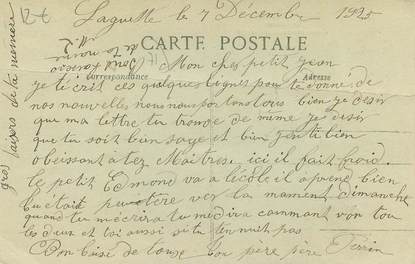 Laguette le 7 Décembre 1925
CARTE POSTALE
Correspondance
Adresse
Mon cher petit jean
je técrit ces quelques lignes pour te donné de
nos nouvelles nous nous portons tous bien je désir
que ma lettre tu trouve de même je désir
que tu soit bien sage et bien gentil bien
obeissant a tez Maitresse ici il fait froid
le petit Edmond va a lécole il aprend bien
tu était peutetre ver la maman dimanche
quand tu mécrira tu me dira cammant von tou
les deux et toi aussi si tu ten nuit pas
Bon baise de tous ton père père
gros baisers de ta mémère